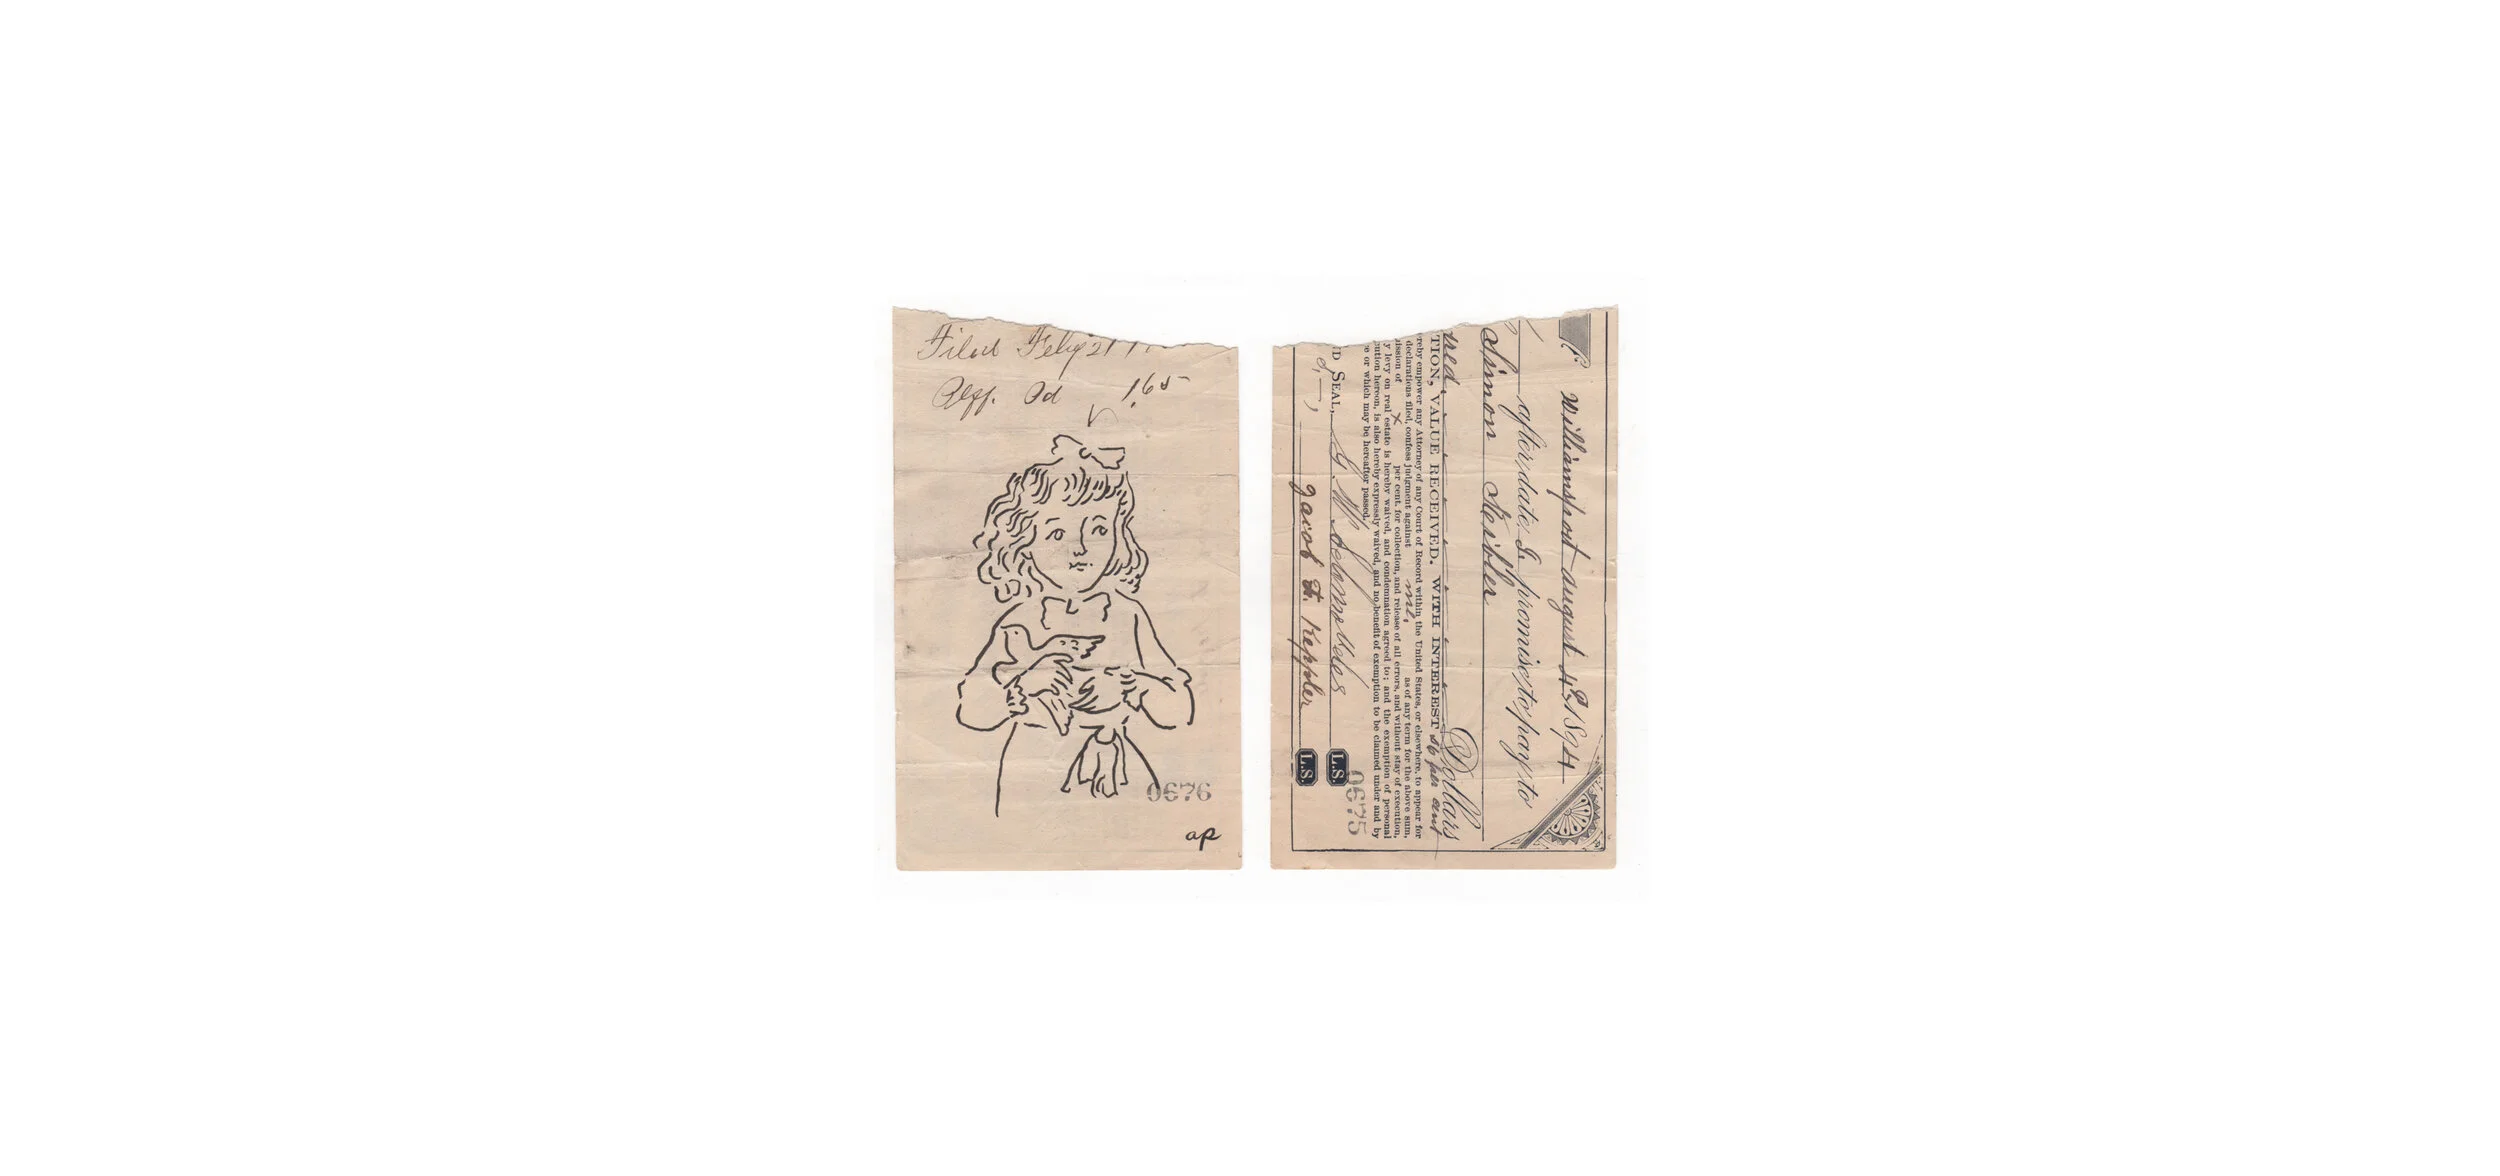 Filed Feby 21
Pltff. Pd 1.65
0676
ap
Williamsport august 4th 1894
after date I promise to pay to
Simon Seibler
Dollars
TION, VALUE RECEIVED. WITH INTEREST
reby empower any Attorney of any Court of Record within the United States, or elsewhere, to appear for
declarations filed, confess judgment against me, as of any term for the above sum,
ission of x per cent. for collection, and release of all errors, and without stay of execution,
y levy on real estate is hereby waived, and condemnation agreed to; and the exemption of personal
cution hereon, is also hereby expressly waived, and no benefit of exemption to be claimed under and by
e or which may be hereafter passed.
ND SEAL, L.S.
Jacob H. Keppler L.S.
0675